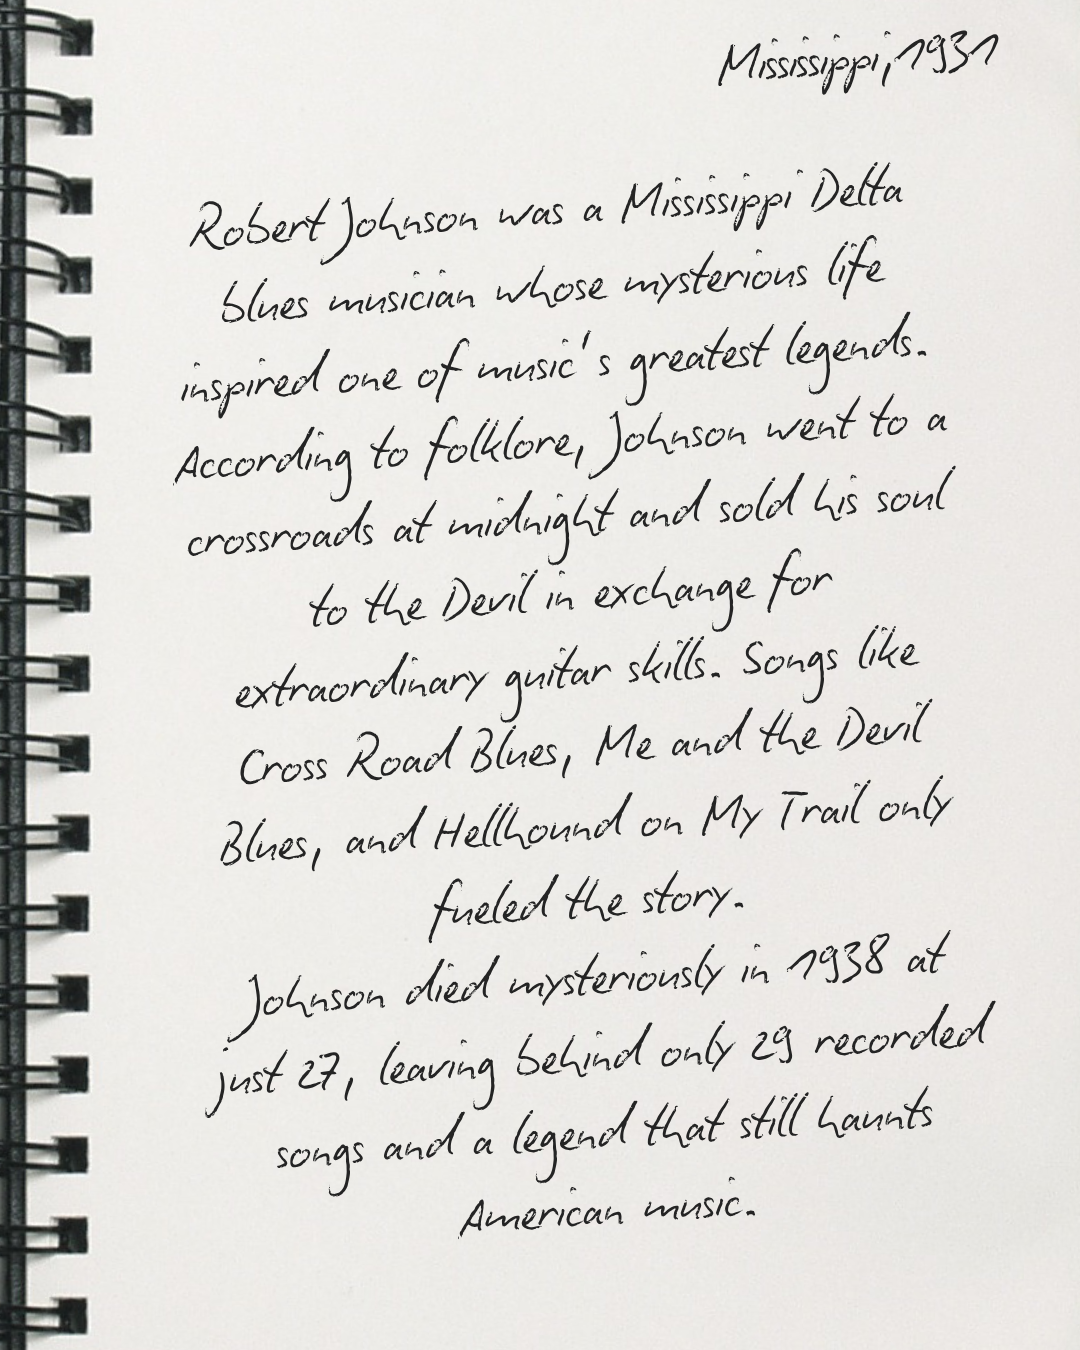 Mississippi, 1931
Robert Johnson was a Mississippi Delta
blues musician whose mysterious life
inspired one of music's greatest legends.
According to folklore, Johnson went to a
crossroads at midnight and sold his soul
to the Devil in exchange for
extraordinary guitar skills. Songs like
Cross Road Blues, Me and the Devil
Blues, and Hellhound on My Trail only
fueled the story.
Johnson died mysteriously in 1938 at
just 27, leaving behind only 29 recorded
songs and a legend that still haunts
American music.